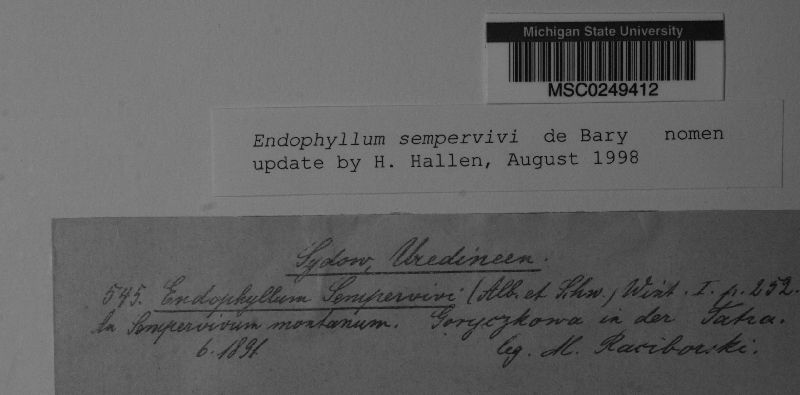 Michigan State University
MSC0249412
Endophyllum sempervivi de Bary nomen
update by H. Hallen, August 1998
Sydow, Uredineen.
545. Endophyllum Sempervivi (Alb. et Schw.) Wint. I. p. 252.
In Sempervivum montanum. Goryczkowa in der Tatra.
6. 1891 leg. M. Raciborski.